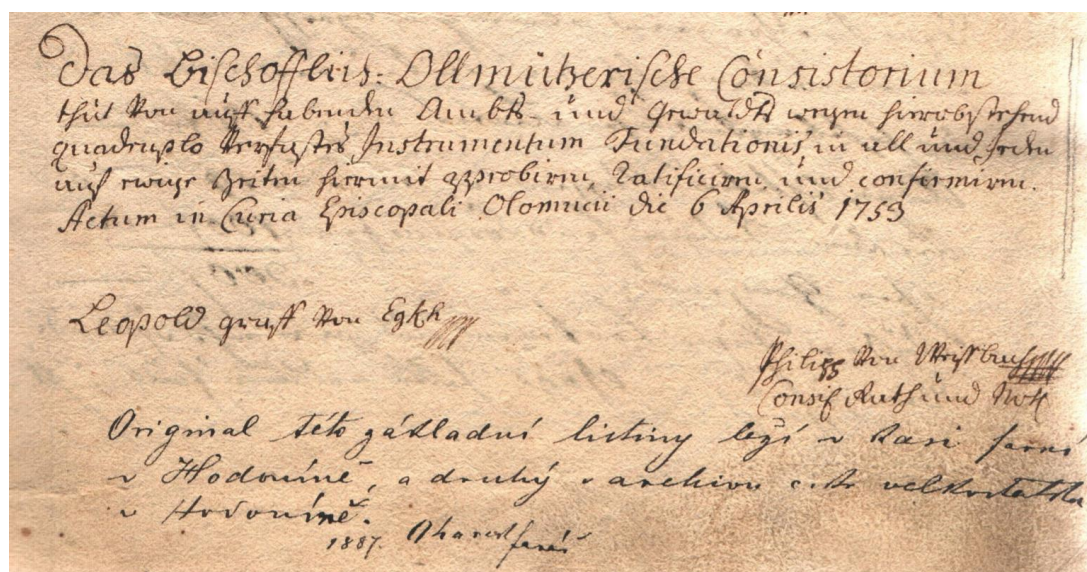 Das Bischofflich: Ollmützerische Consistorium
thut von auff habenden Ambts- und Gewaldts wegen hierobstehend
quadruplo verfastes Instrumentum Fundationis in all und jeden
auf ewige Zeiten hiermit approbiren, Ratificiren und confirmiren.
Actum in Curia Episcopali Olomucii die 6 Aprilis 1753
Leopold graff von Egkh
Philipp von Weissbach
Consis Rath und Not
Original této základní listiny leží v kasi farní
v Hodoníně, a druhý v archivu velkostatku
v Hodoníně.
1887. farář